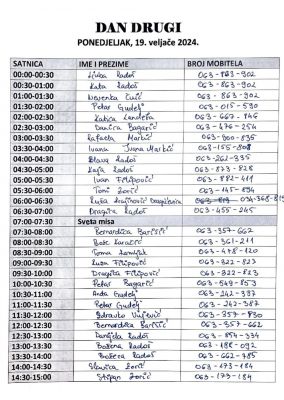 DAN DRUGI
PONEDJELJAK, 19. veljače 2024.
SATNICA IME I PREZIME BROJ MOBITELA
00:00-00:30 Ljuba Radoš 063-883-902
00:30-01:00 Kata Radoš 063-883-902
01:00-01:30 Nevenka 063-863-902
01:30-02:00 Petar Gudelj 063-015-530
02:00-02:30 Katica Landeka 063-667-146
02:30-03:00 Danica Bagarić 063-476-254
03:00-03:30 Rafaela Markić 063-900-835
03:30-04:00 Ivana Ivana Markić 063-155-308
04:00-04:30 Slava Radoš 063-262-815
04:30-05:00 Kaja Radoš 063-873-828
05:00-05:30 Ivan Filipović 063-882-411
05:30-06:00 Toni Zorić 063-145-834
06:00-06:30 Ruža
06:30-07:00 Dragita Radoš 063-455-245
07:00-07:30 Sveta misa
07:30-08:00 Bernardica Barišić 063-357-662
08:00-08:30 Bože 063-361-211
08:30-09:00 Toma 063-478-120
09:00-09:30 Luca Filipović 063-822-823
09:30-10:00 Dragita Filipović 063-822-823
10:00-10:30 Petar Bagarić 063-549-853
10:30-11:00 Anda Gudelj 063-242-387
11:00-11:30 Petar Gudelj 063-242-387
11:30-12:00 Zdravko Vujević 063-357-830
12:00-12:30 Bernardica Barišić 063-357-662
12:30-13:00 Danijela Radoš 063-854-334
13:00-13:30 Božena Radoš 063-188-092
13:30-14:00 Božena Radoš 063-662-785
14:00-14:30 Slavica Zorić 063-173-184
14:30-15:00 Stipan Zorić 063-173-184